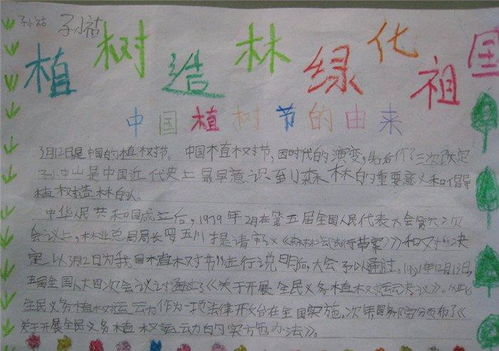 子小喆 子小喆
植树造林绿化祖国
中国植树节的由来
3月12日是中国的植树节。中国植树节,因时代的演变,先后作了三次改定
孙中山是中国近代史上最早意识到森林的重要意义和倡导
植树造林的人。
中华人民共和国成立后,1979年2月在第五届全国人民代表大会第六次
会议上,林业总局局长罗玉川提请审议《森林法试行草案》和对决
定以3月12日为我国植树节进行说明后大会予以通过,1981年12月13日,
五届全国人大四次会议讨论通过了《关于开展全民义务植树运动决议》。从此
全民义务植树运动作为一项法律开始在全国实施。次年国务院颁布了《
关于开展全民义务植树运动的实施办法》。